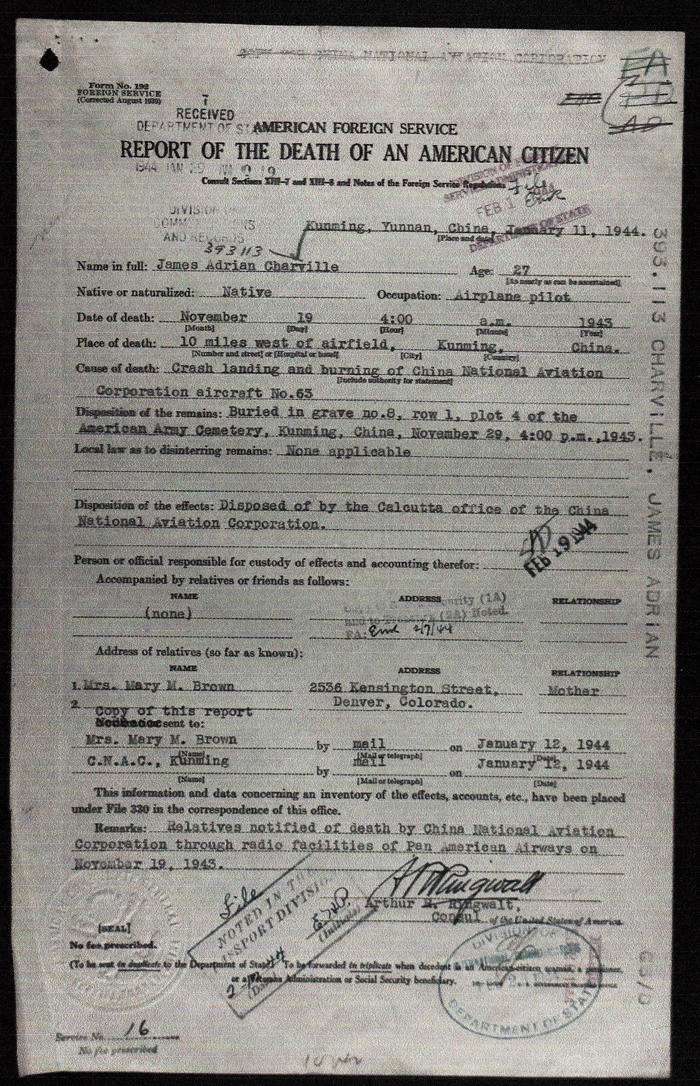 COPY FOR CHINA NATIONAL AVIATION CORPORATION
Form No. 192
FOREIGN SERVICE
(Corrected August 1939)
RECEIVED
DEPARTMENT OF STATE
AMERICAN FOREIGN SERVICE
REPORT OF THE DEATH OF AN AMERICAN CITIZEN
1944 JAN 29
Consult Sections XIII-7 and XIII-8 and Notes of the Foreign Service Regulations
File
FEB 1 1944
DEPARTMENT OF STATE
DIVISION OF
COMMUNICATIONS
AND RECORDS
Kunming, Yunnan, China, January 11, 1944.
[Place and date]
393113
Name in full: James Adrian Charville Age: 27
[As nearly as can be ascertained]
Native or naturalized: Native Occupation: Airplane pilot
Date of death: November 19 4:00 a.m. 1943
[Month] [Day] [Hour] [Minute] [Year]
Place of death: 10 miles west of airfield, Kunming, China.
[Number and street] or [Hospital or hotel] [City] [Country]
Cause of death: Crash landing and burning of China National Aviation
[Include authority for statement]
Corporation aircraft No.63
Disposition of the remains: Buried in grave no.8, row 1, plot 4 of the
American Army Cemetery, Kunming, China, November 29, 4:00 p.m.,1943.
Local law as to disinterring remains: None applicable
Disposition of the effects: Disposed of by the Calcutta office of the China
National Aviation Corporation.
FEB 19 1944
Person or official responsible for custody of effects and accounting therefor:
Accompanied by relatives or friends as follows:
NAME ADDRESS RELATIONSHIP
(none)
Noted.
2/7/44
Address of relatives (so far as known):
NAME ADDRESS RELATIONSHIP
1. Mrs. Mary M. Brown 2536 Kensington Street, Mother
Denver, Colorado.
2.
Copy of this report
sent to:
Mrs. Mary M. Brown by mail on January 12, 1944
[Name] [Mail or telegraph] [Date]
C.N.A.C., Kunming by mail on January 12, 1944
[Name] [Mail or telegraph] [Date]
This information and data concerning an inventory of the effects, accounts, etc., have been placed
under File 330 in the correspondence of this office.
Remarks: Relatives notified of death by China National Aviation
Corporation through radio facilities of Pan American Airways on
November 19, 1943.
File
NOTED IN THE
PASSPORT DIVISION
(Initials)
Arthur R. Ringwalt,
Consul of the United States of America.
[SEAL]
No fee prescribed.
(To be sent in duplicate to the Department of State. To be forwarded in triplicate when decedent is an American citizen seaman, a pensioner,
or a Veterans Administration or Social Security beneficiary.
DIVISION OF
DEPARTMENT OF STATE
Service No. 16
No fee prescribed
393.113 CHARVILLE, JAMES ADRIAN